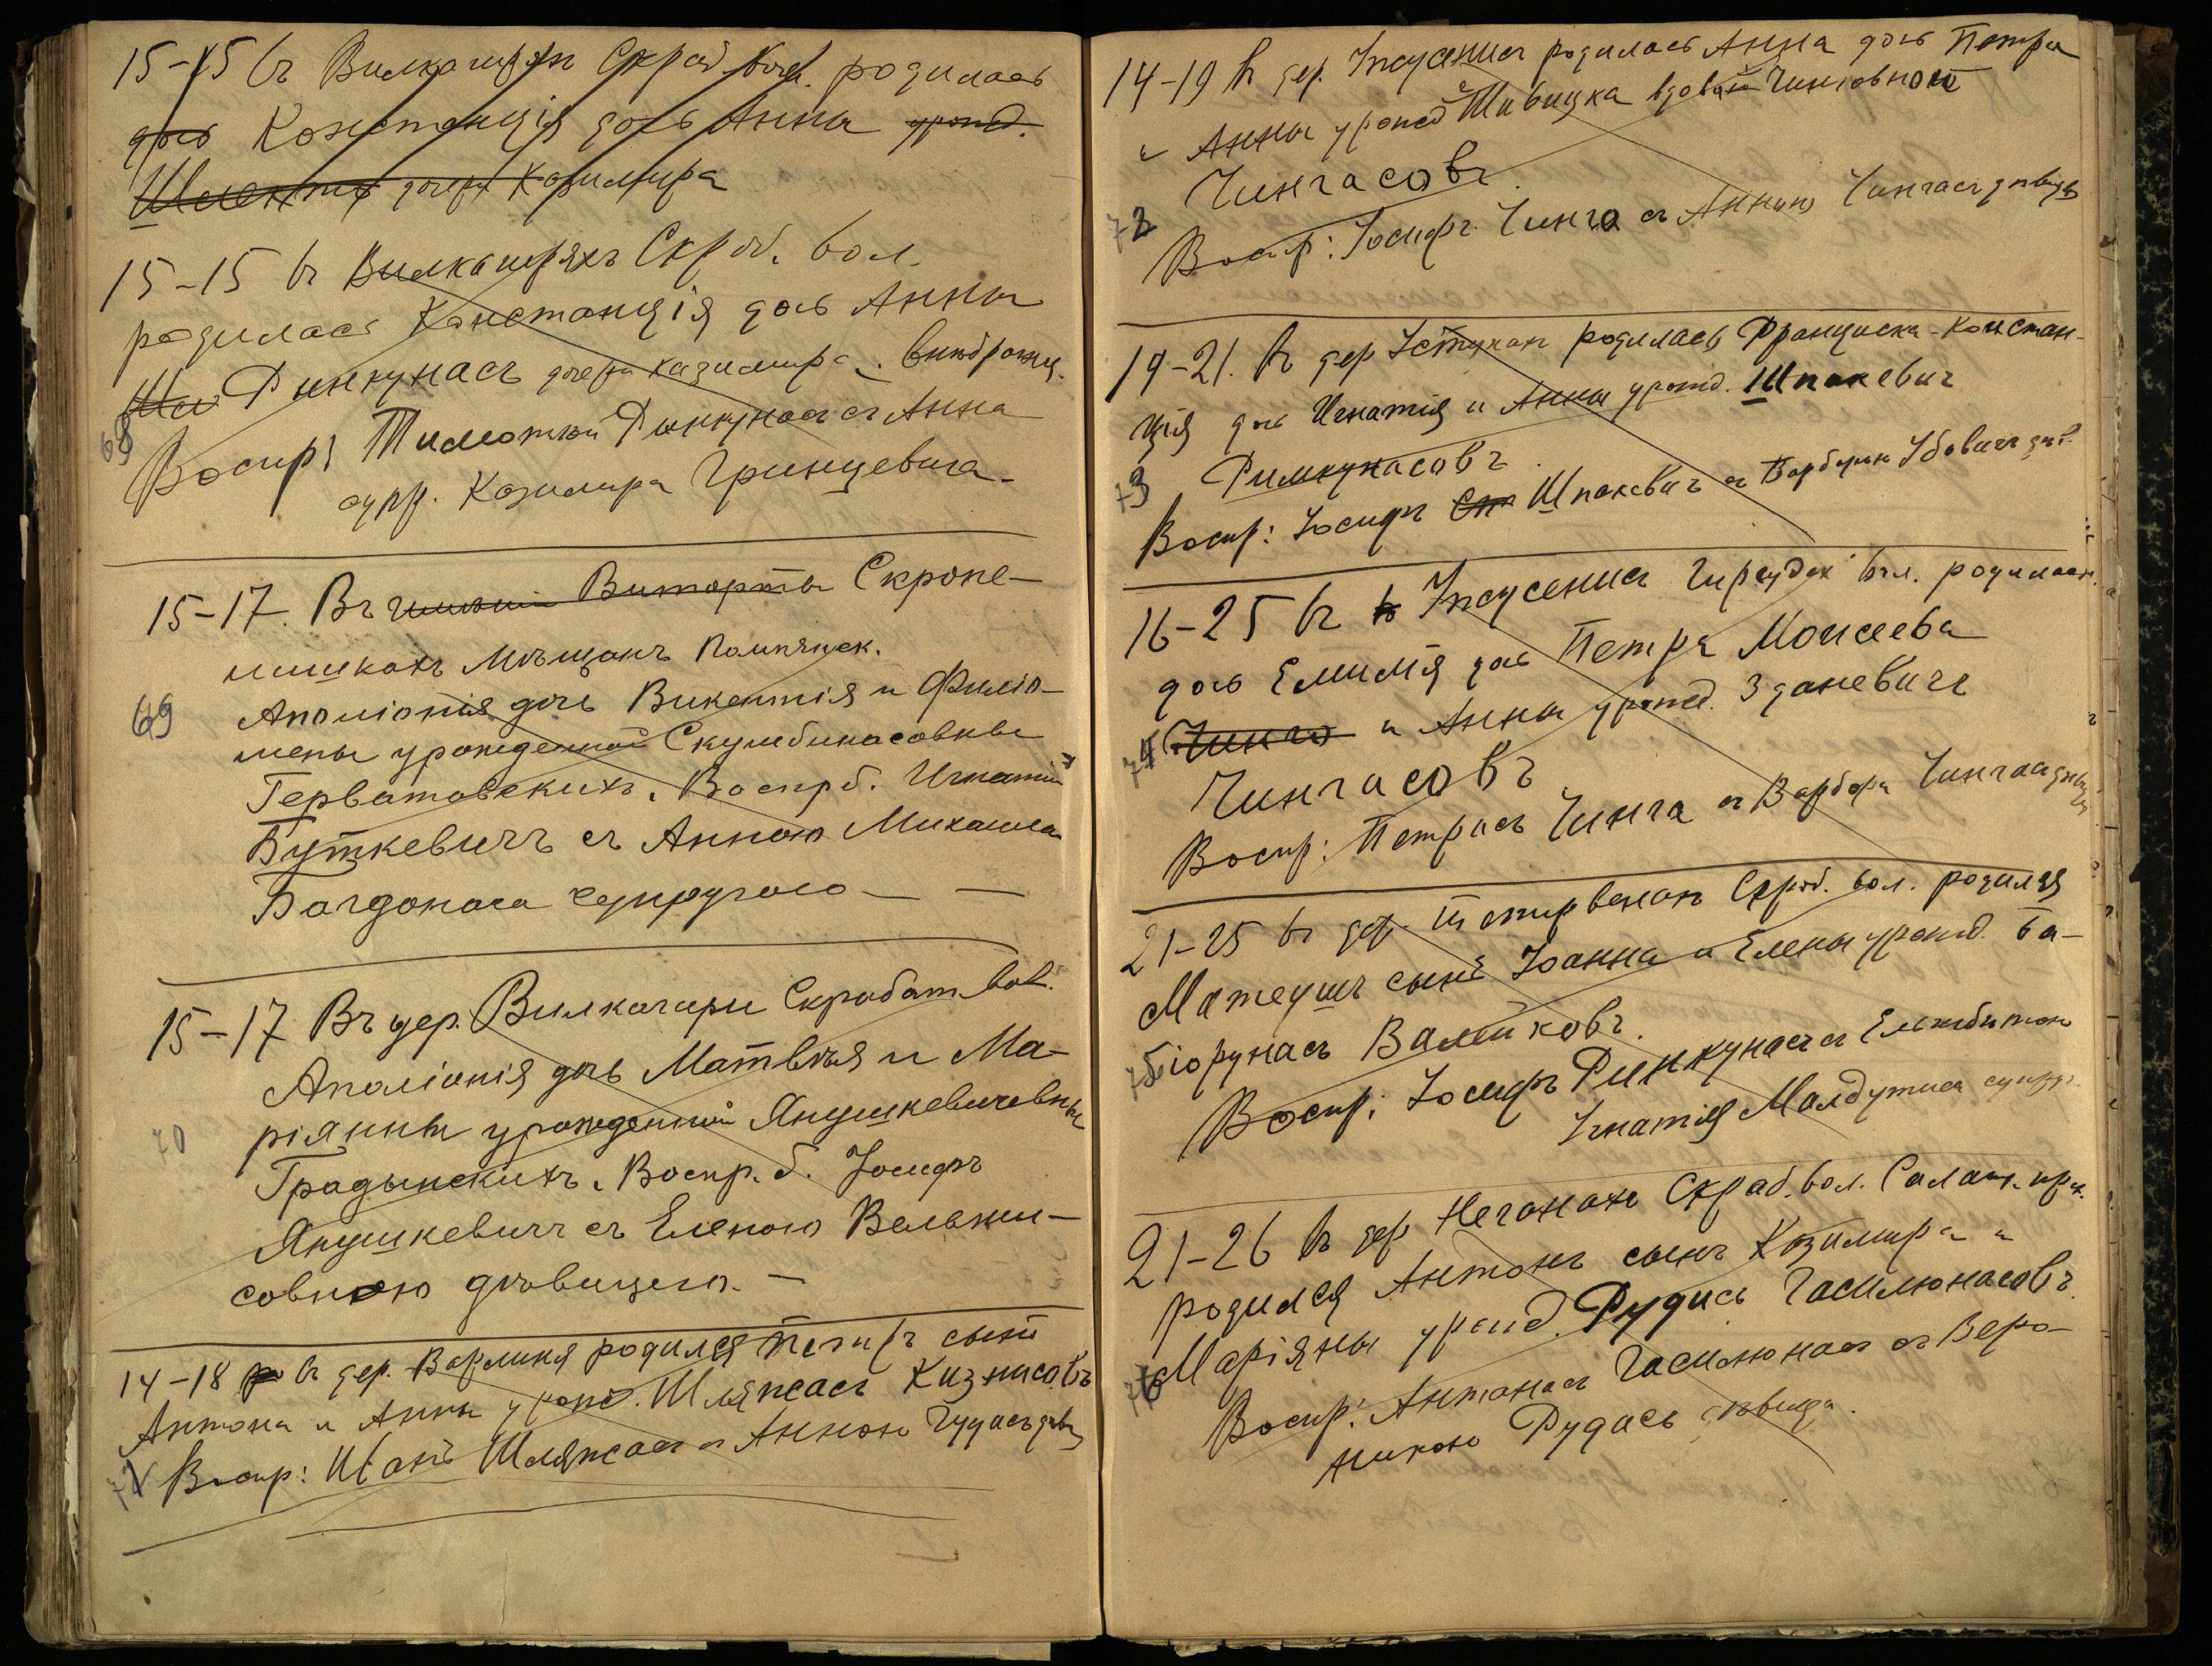 15-15 въ Вилкагиряхъ Скроб. Вол. родилась
дочь Констанція дочь Анны урожд.
дочери Казимира
15-15 въ Вилкагиряхъ Скроб. вол.
родилась Констанція дочь Анны
Ринкунасъ дочери Казимира, внѣбрачн.
68
Воспр: Тимотей Ринкунасъ съ Анна
супр. Казимира Гринцевича-
15-17. Въ имѣніи Виторты Скропе-
нишкахъ Мѣщанъ Помпянск.
69 Аполіонія дочь Викентія и Фило-
мены урожденной Скумбинасовны
Герватовскихъ. Воспр б. Игнатій
Буткевичъ съ Анною Михаила
Багдонаса супругою —
15-17 Въ дер. Вилкагири Скробат. вол.
Аполіонія дочь Матвѣя и Ма-
70 ріянны урожденной Янушкевичевны
Градынскихъ. Воспр. б. Іосифъ
Янушкевичъ съ Еленою Велькин-
совною дѣвицею. —
14-18 въ дер. родился Петръ сынъ
Антона и Анны урожд. Шляжасъ Кизнисовъ
71 Воспр: Иванъ Шляжасъ съ Анною Гудасъ дѣв
14-19 въ дер. родилась Анна дочь Петра
и Анны урожд вдовой
72 Чингасовъ.
Воспр: Іосифъ Чинга съ Анною Чингасъ дѣвица
19-21. въ дер родилась Франциска-Констан-
ція дочь Игнатія и Анны урожд. Шпакевичъ
73 Римкунасовъ.
Воспр: Іосифъ Шпакевичъ съ Варбарою
16-25 въ вол. родилась
дочь Емилія дочь Петра Моисеева
74 Чинга и Анны урожд. Зданевичъ
Чингасовъ
Воспр: Петрасъ Чинга съ Варбара Чингасъ дѣвица
21-25 въ дер. Скроб. вол. родился
Матеушъ сынъ Іоанна и Елены урожд. Ба-
75 біорунасъ Валейковъ.
Воспр: Іосифъ Ринкунасъ съ Елжбетою
Игнатія Малдутиса супруг.
21-26 въ дер Неганахъ Скроб. вол. Салат. прих.
родился Антонъ сынъ Казимира и
76 Маріяны урожд. Рудисъ Гасилюнасовъ.
Воспр: Антанасъ Гасилюнасъ съ Веро-
никою Рудасъ дѣвица.